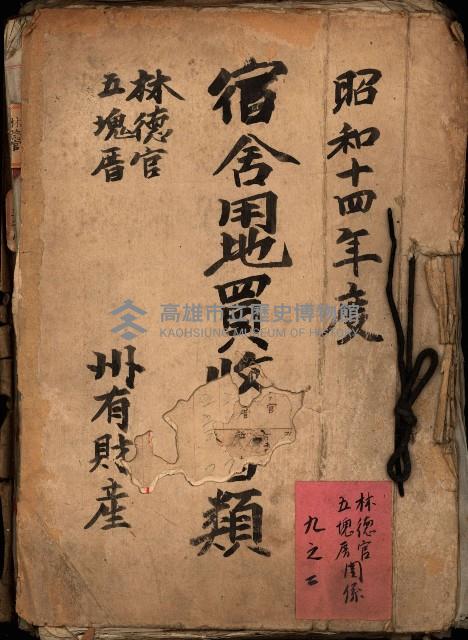 昭和十四年度
宿舍用地買收 類
林德官
五塊厝
州有財產
林德官
五塊厝関係
九之二
高雄市立歷史博物館
KAOHSIUNG MUSEUM OF HISTORY
林德官